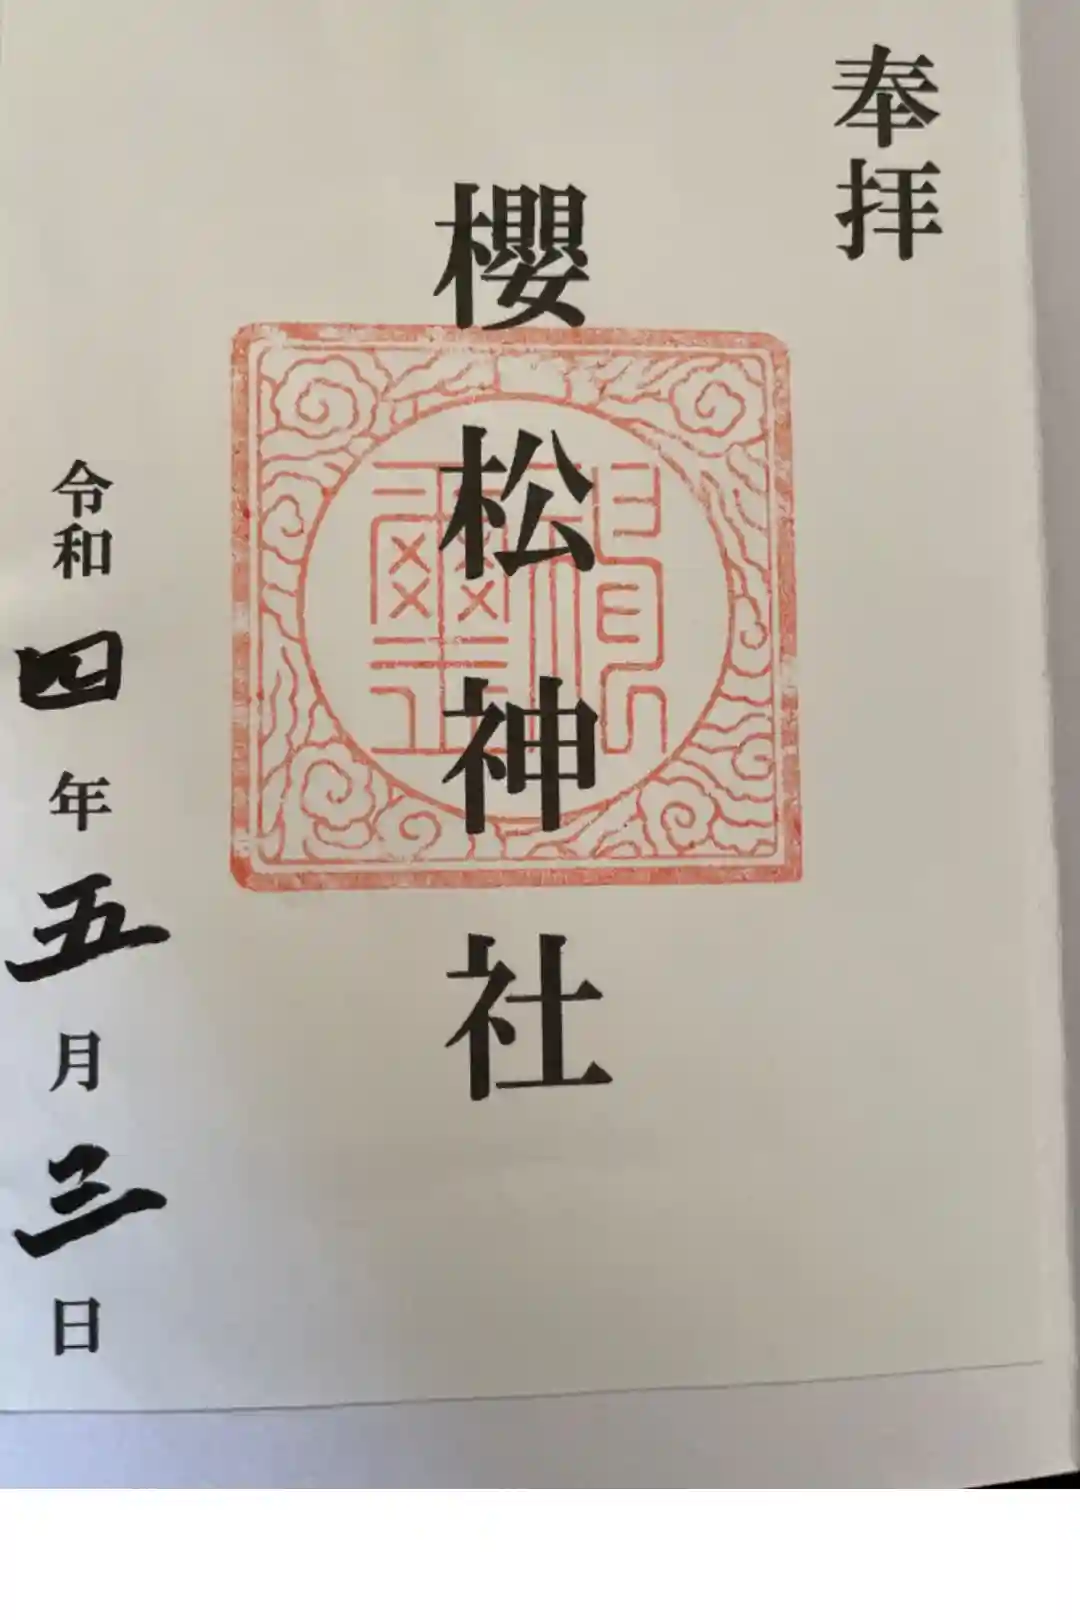 奉拝
櫻松神社
令和四年五月三日